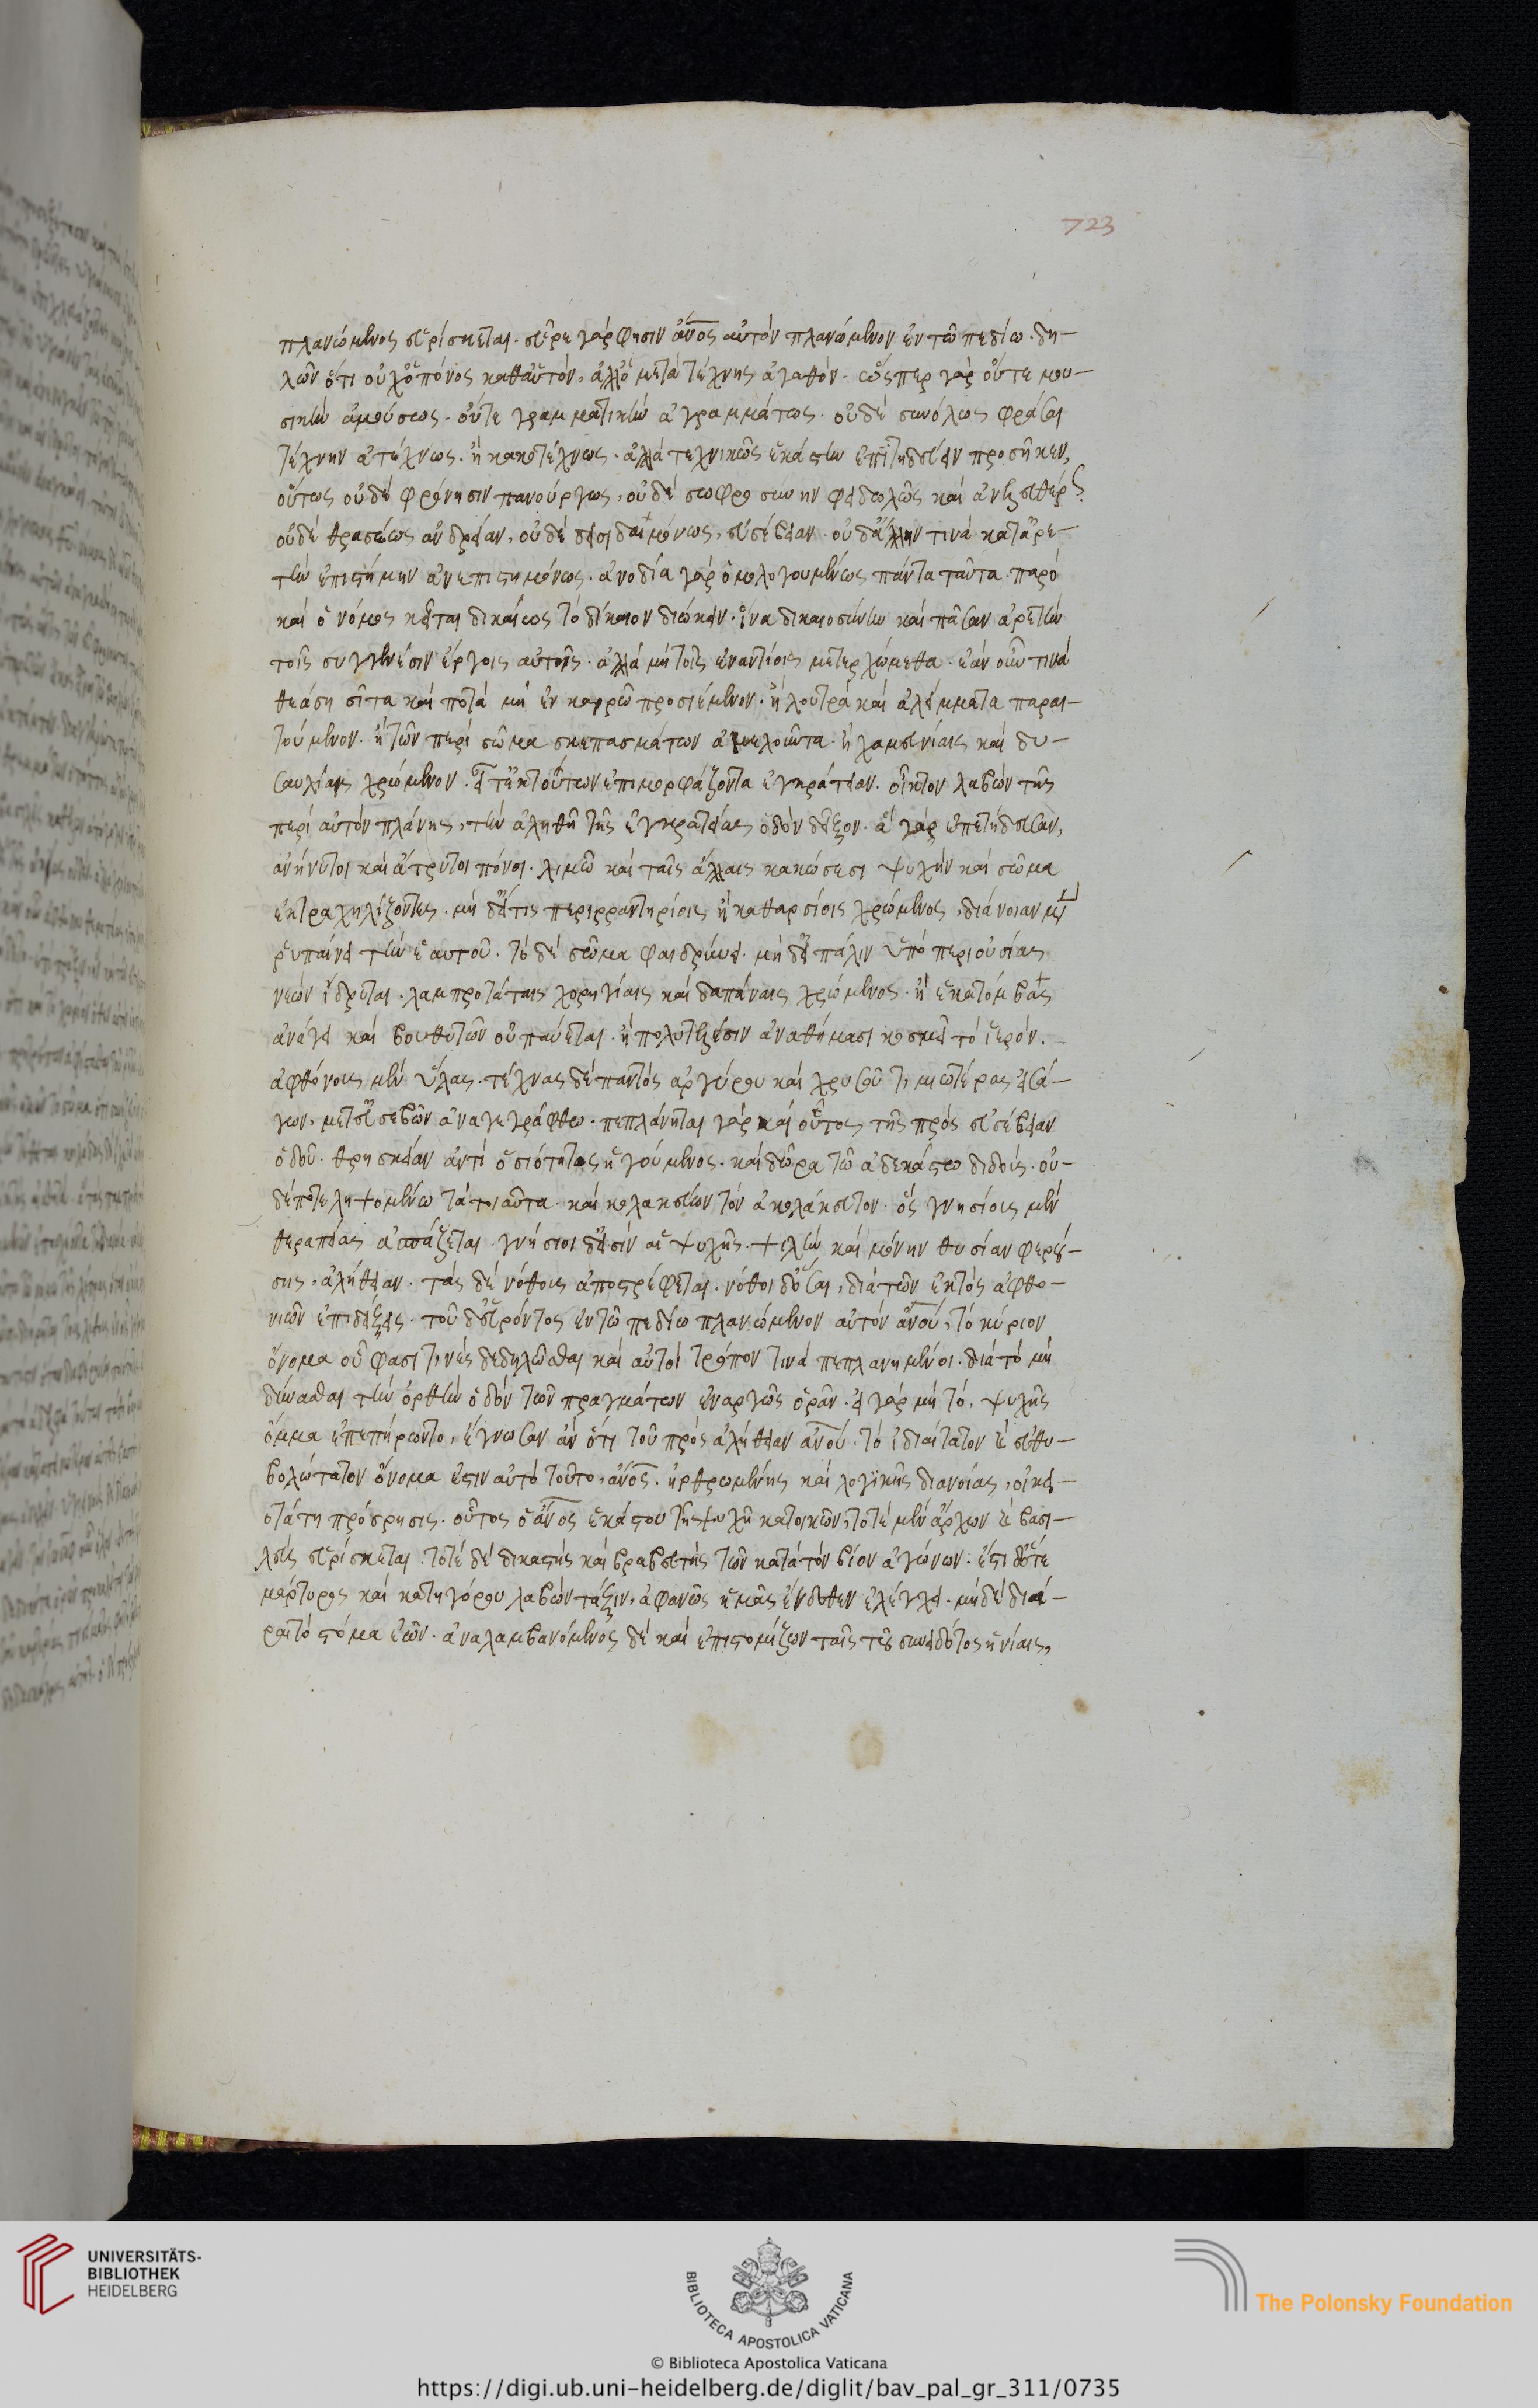 723
πλανώμενος εὑρίσκεται. εὗρε γάρ φησιν ἄνος αὐτὸν πλανώμενον ἐν τῶ πεδίω. δη-
λῶν ὅτι οὐχ ὁ πόνος καθ αὑτὸν, ἀλλ ὁ μετὰ τέχνης ἀγαθόν. ὥσπερ γὰρ οὔτε μου-
σικὴν ἀμούσως. οὔτε γραμματικὴν ἀγραμμάτως. οὐδὲ συνόλως φράσαι
τέχνην ἀτέχνως. ἢ κακοτέχνως. ἀλλὰ τεχνικῶς ἑκάστην ἐπιτηδεύειν προσῆκεν,
οὕτως οὐδὲ φρόνησιν πανούργως, οὐδὲ σωφροσύνην φειδωλῶς καὶ ἀνελευθέρως
οὐδὲ θρασέως ἀνδρείαν, οὐδὲ δεισιδαιμόνως, εὐσέβειαν. οὐδ ἄλλην τινὰ κατ ἀρε-
τὴν ἐπιστήμην ἀνεπιστημόνως. ἀνοδία γὰρ ὁμολογουμένως πάντα ταῦτα. παρὸ
καὶ ὁ νόμος κεῖται δικαίως τὸ δίκαιον διώκειν. ἵνα δικαιοσύνην καὶ πᾶσαν ἀρετὴν
τοῖς συγγενέσιν ἔργοις αὐτῆς. ἀλλὰ μὴ τοῖς ἐναντίοις μετερχώμεθα. ἐὰν οὖν τινὰ
θεάση σῖτα καὶ ποτὰ μὴ ἐν καιρῶ προσιέμενον. ἢ λουτρὰ καὶ ἀλείμματα παραι-
τούμενον. ἢ τῶν περὶ σῶμα σκεπασμάτων ἀμελοῦντα. ἢ χαμευνίαις καὶ δυ-
σαυλίαις χρώμενον. εἶτ ἐκ τούτων ἐπιμορφάζοντα ἐγκράτειαν. οἶκτον λαβὼν τῆς
περὶ αὐτὸν πλάνης, τὴν ἀληθῆ τῆς ἐγκρατείας ὁδὸν δεῖξον. ἃ γὰρ ἐπετήδευσαν,
ἀνήνυτοι καὶ ἄτρυτοι πόνοι. λιμῶ καὶ ταῖς ἄλλαις κακώσεσι ψυχὴν καὶ σῶμα
ἐκτραχηλίζοντες. μὴ δ εἴ τις περιρραντηρίοις ἢ καθαρσίοις χρώμενος, διάνοιαν μὲν
ῥυπαίνει τὴν ἑαυτοῦ. τὸ δὲ σῶμα φαιδρύνει. μὴ δ εἰ πάλιν ὑπὸ περιουσίας
νεὼν ἱδρύται. λαμπροτάταις χορηγίαις καὶ δαπάναις χρώμενος. ἢ ἑκατόμβας
ἀνάγει καὶ βουθυτῶν οὐ παύεται. ἢ πολυτελέσιν ἀναθήμασι κοσμεῖ τὸ ἱερόν.
ἀφθόνους μὲν ὕλας. τέχνας δὲ παντὸς ἀργύρου καὶ χρυσοῦ τιμιωτέρας εἰσά-
γων, μετ εὐσεβῶν ἀναγεγράφθω. πεπλάνηται γὰρ καὶ οὗτος τῆς πρὸς εὐσέβειαν
ὁδοῦ. θρησκείαν ἀντὶ ὁσιότητος ἡγούμενος. καὶ δῶρα τῶ ἀδεκάστω διδούς. οὐ-
δέποτε ληψομένω τὰ τοιαῦτα. καὶ κολακεύων τὸν ἀκολάκευτον. ὃς γνησίους μὲν
θεραπείας ἀσπάζεται. γνήσιοι δ εἰσὶν αἱ ψυχῆς. ψιλὴν καὶ μόνην θυσίαν φερού-
σης, ἀλήθειαν. τὰς δὲ νόθους ἀποστρέφεται. νόθοι δ ὅσαι, διὰ τῶν ἐκτὸς ἀφθο-
νιῶν ἐπιδείξεις. τοῦ δ εὑρόντος ἐν τῶ πεδίω πλανώμενον αὐτὸν ἀνοῦ, τὸ κύριον
ὄνομα οὔ φασί τινες δεδηλῶσθαι καὶ αὐτοὶ τρόπον τινὰ πεπλανημένοι. διὰ τὸ μὴ
δύνασθαι τὴν ὀρθὴν ὁδὸν τῶν πραγμάτων ἐναργῶς ὁρᾶν. εἰ γὰρ μὴ τὸ, ψυχῆς
ὄμμα ἐπεπήρωντο, ἔγνωσαν ἂν ὅτι τοῦ πρὸς ἀλήθειαν ἀνοῦ. τὸ ἰδιαίτατον καὶ εὐθυ-
βολώτατον ὄνομα ἐστιν αὐτὸ τοῦτο, ἄνος. ἠρθρωμένης καὶ λογικῆς διανοίας, οἰκει-
οτάτη πρόσρησις. οὗτος ὁ ἄνος ἑκάστου τῆ ψυχῆ κατοικῶν, τοτὲ μὲν ἄρχων καὶ βασι-
λεὺς εὑρίσκεται. τοτὲ δὲ δικαστὴς καὶ βραβευτὴς τῶν κατὰ τὸν βίον ἀγώνων. ἔστι δ ὅτε
μάρτυρος καὶ κατηγόρου λαβὼν τάξιν, ἀφανῶς ἡμᾶς ἔνδοθεν ἐλέγχει. μηδὲ διᾶ-
ραι τὸ στόμα ἐῶν. ἀναλαμβανόμενος δὲ καὶ ἐπιστομίζων ταῖς τοῦ συνειδότος ἡνίαις,
UNIVERSITÄTS-
BIBLIOTHEK
HEIDELBERG
BIBLIOTECA APOSTOLICA VATICANA
The Polonsky Foundation
© Biblioteca Apostolica Vaticana
https://digi.ub.uni-heidelberg.de/diglit/bav_pal_gr_311/0735